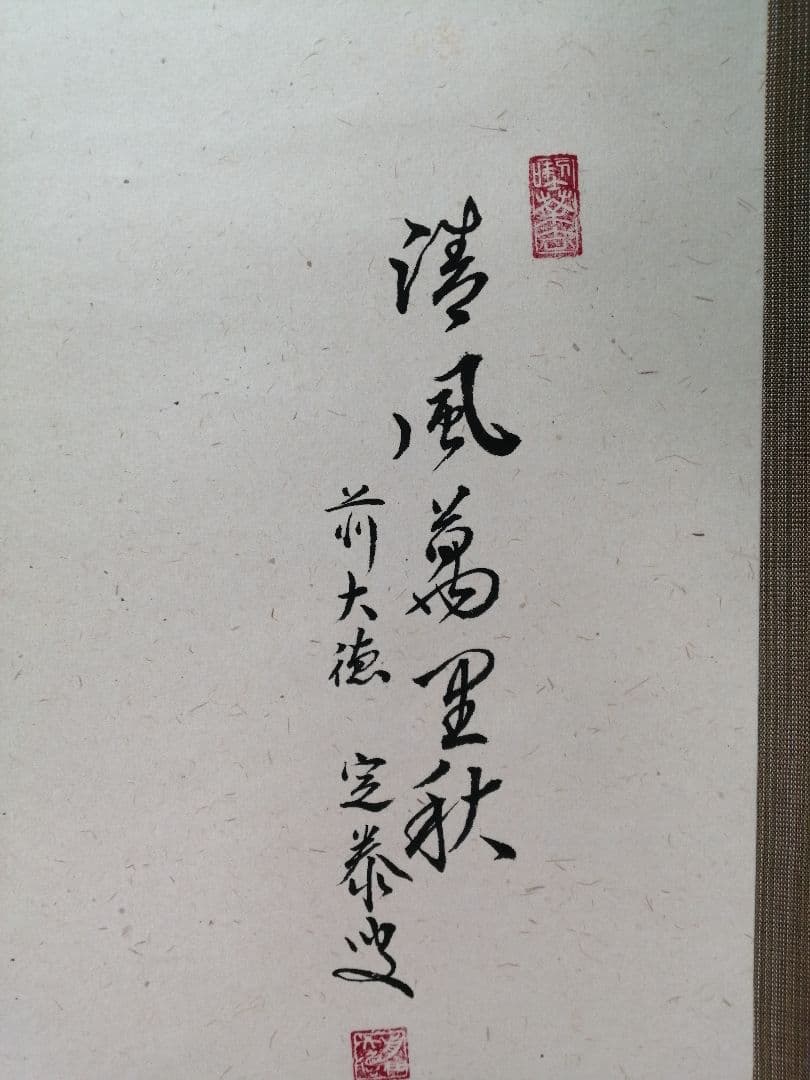 清風萬里秋
前大徳 定泰叟